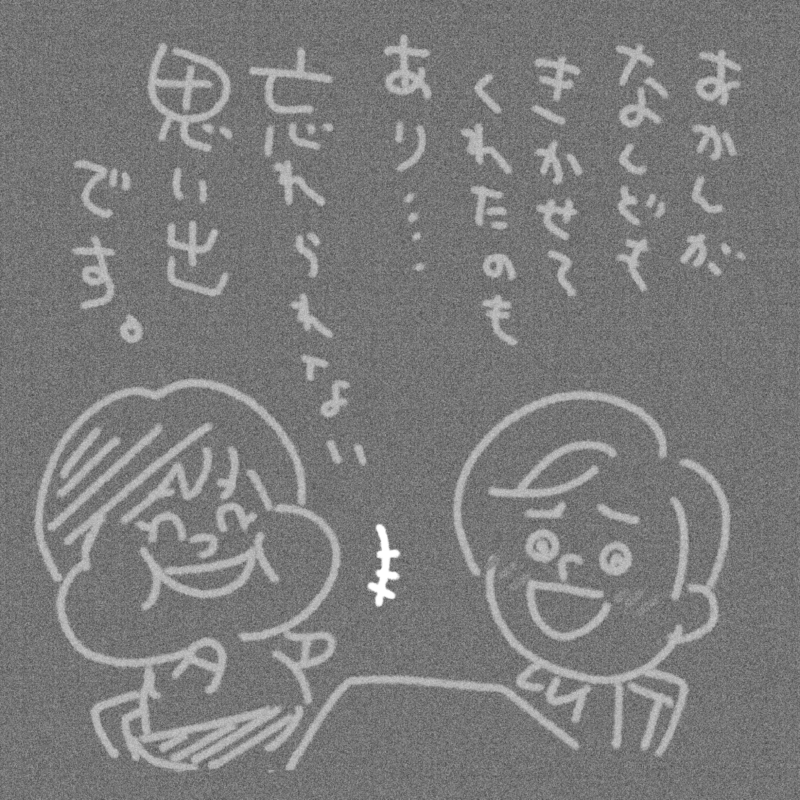 おかしが
なよくども
きかせて
くれたのも
あり…
忘れられない
思い出
です。